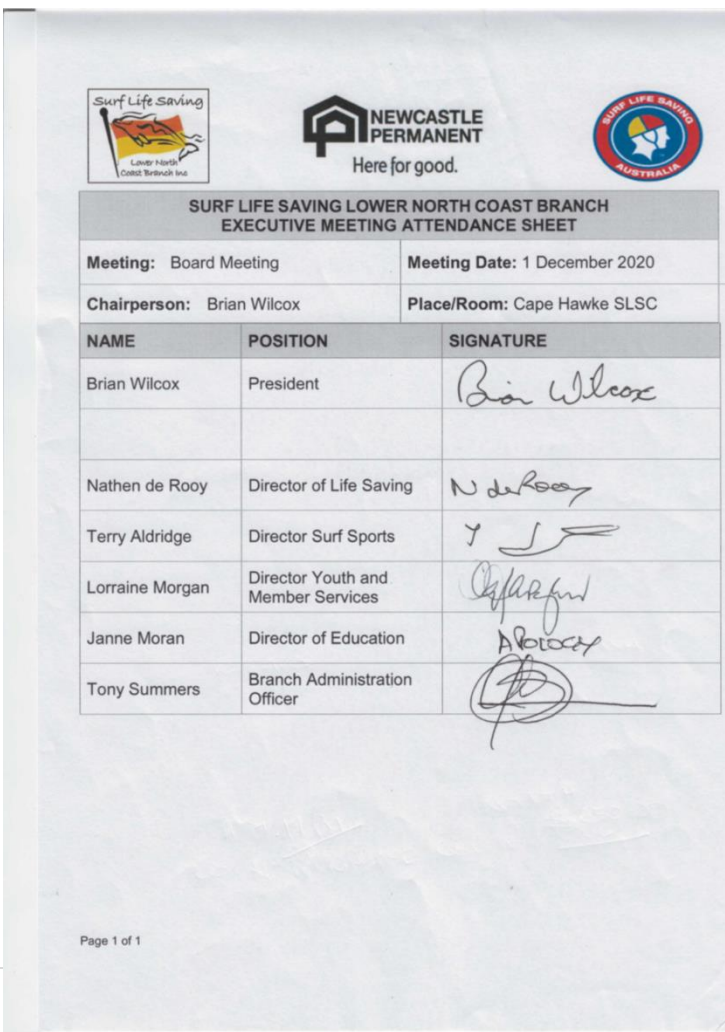 Surf Life Saving
Lower North
Coast Branch Inc
NEWCASTLE
PERMANENT
Here for good.
SURF LIFE SAVING
AUSTRALIA
SURF LIFE SAVING LOWER NORTH COAST BRANCH
EXECUTIVE MEETING ATTENDANCE SHEET
Meeting: Board Meeting
Meeting Date: 1 December 2020
Chairperson: Brian Wilcox
Place/Room: Cape Hawke SLSC
NAME POSITION SIGNATURE
Brian Wilcox President Brian Wilcox
Nathen de Rooy Director of Life Saving N de Rooy
Terry Aldridge Director Surf Sports
Lorraine Morgan Director Youth and
Member Services
Janne Moran Director of Education APOLOGY
Tony Summers Branch Administration
Officer
Page 1 of 1